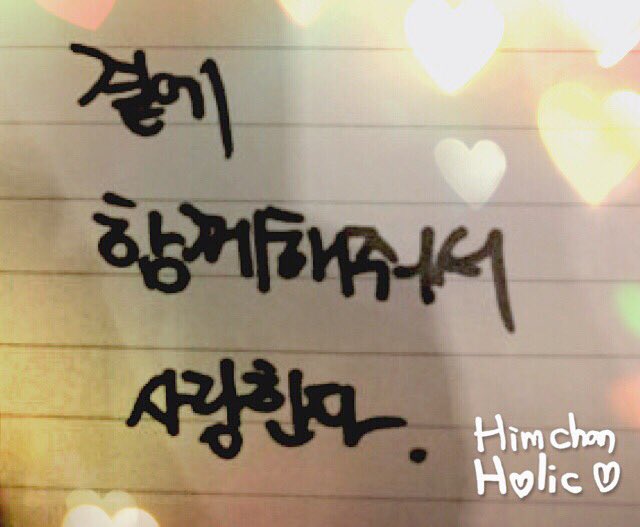 곁에
함께해줘서
사랑한다.
Himchan
Holic